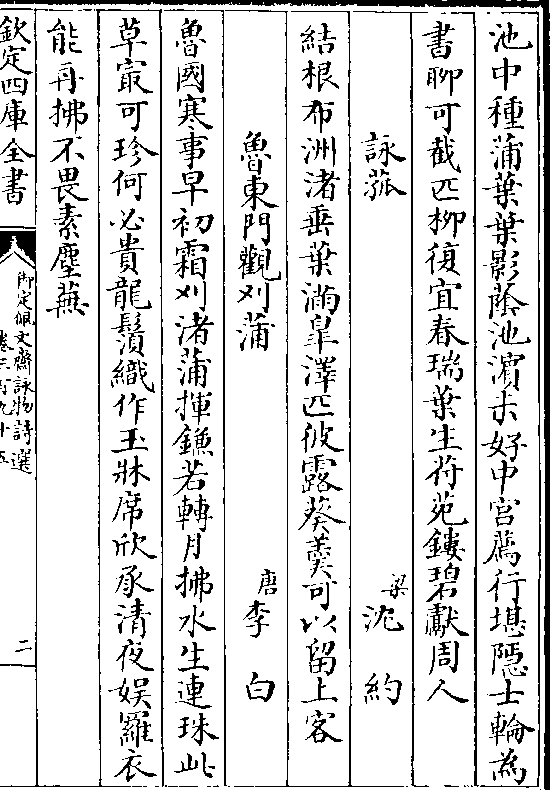 池中種蒲葉葉影蔭池濱未好中宮薦行堪隱士輪為
書聊可截匹柳復宜春瑞葉生苻苑鏤碧獻周人
詠菰 梁 沈約
結根布洲渚垂葉滿皐澤匹彼露葵羹可以留上客
魯東門觀刈蒲 唐 李白
魯國寒事早初霜刈渚蒲揮鎌若轉月拂水生連珠此
草寂可珍何必貴龍鬚織作玉牀席欣承清夜娱羅衣
能再拂不畏素塵蕪
欽定四庫全書
御定佩文齋詠物詩選
卷三百九十五
二